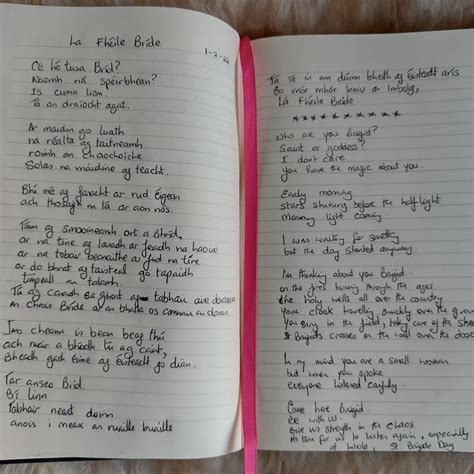 La Fhéile Bríde
1-2-22
Cé hé tusa Bríd?
Naomh ná spéirbhean?
Is cuma liom
Tá an draíocht agat.
Ar maidin go luath
na réalta ag taitneamh
roimh an
Solas na maidine ag teacht.
Bhí mé ag fanacht ar rud éigean
ach thosaigh an lá ar aon nós.
Táim ag smaoineamh ort a Bhríd,
ar na tine ag lasadh ar feadh na
ar na tobair beannaithe ar fud na tíre
ar do bhrat ag taisteal go tapaidh
timpeall an talamh.
Tú ag canadh sa ghort ag tabhair aire
an chrois Bríde ar an bhalla os comhair an dorais
Imo cheann is bean beag thú
ach nuair a bhíodh tú ag caint,
Bheadh gach éinne ag éisteacht go dian.
Tar anseo Bríd.
Bí linn
Tabhair neart dúinn
anois i measc an ruaille buaille
Tá sé in am dúinn bheith ag éisteacht arís
Go mór mhór inniu ar Imbolg,
Lá Fhéile Bríde
* * * * * * * * *
Who are you Brigid?
Saint or goddess?
I don't care
You have the magic about you.
Early morning
stars shining before the half-light
Morning light coming
I was waiting for something
but the day started anyway.
I'm thinking about you Brigid
on the fires burning through the ages
the holy wells all over the country
Your cloak travelling quickly over the
You sing in the field, taking care of the
St Brigid's crosses on the wall over the door
In my mind you are a small woman
but when you spoke
everyone listened carefully.
Come here Brigid.
Be with us
Give us strength in the chaos
Its time for us to listen again, especially
at Imbolc, St Brigids Day